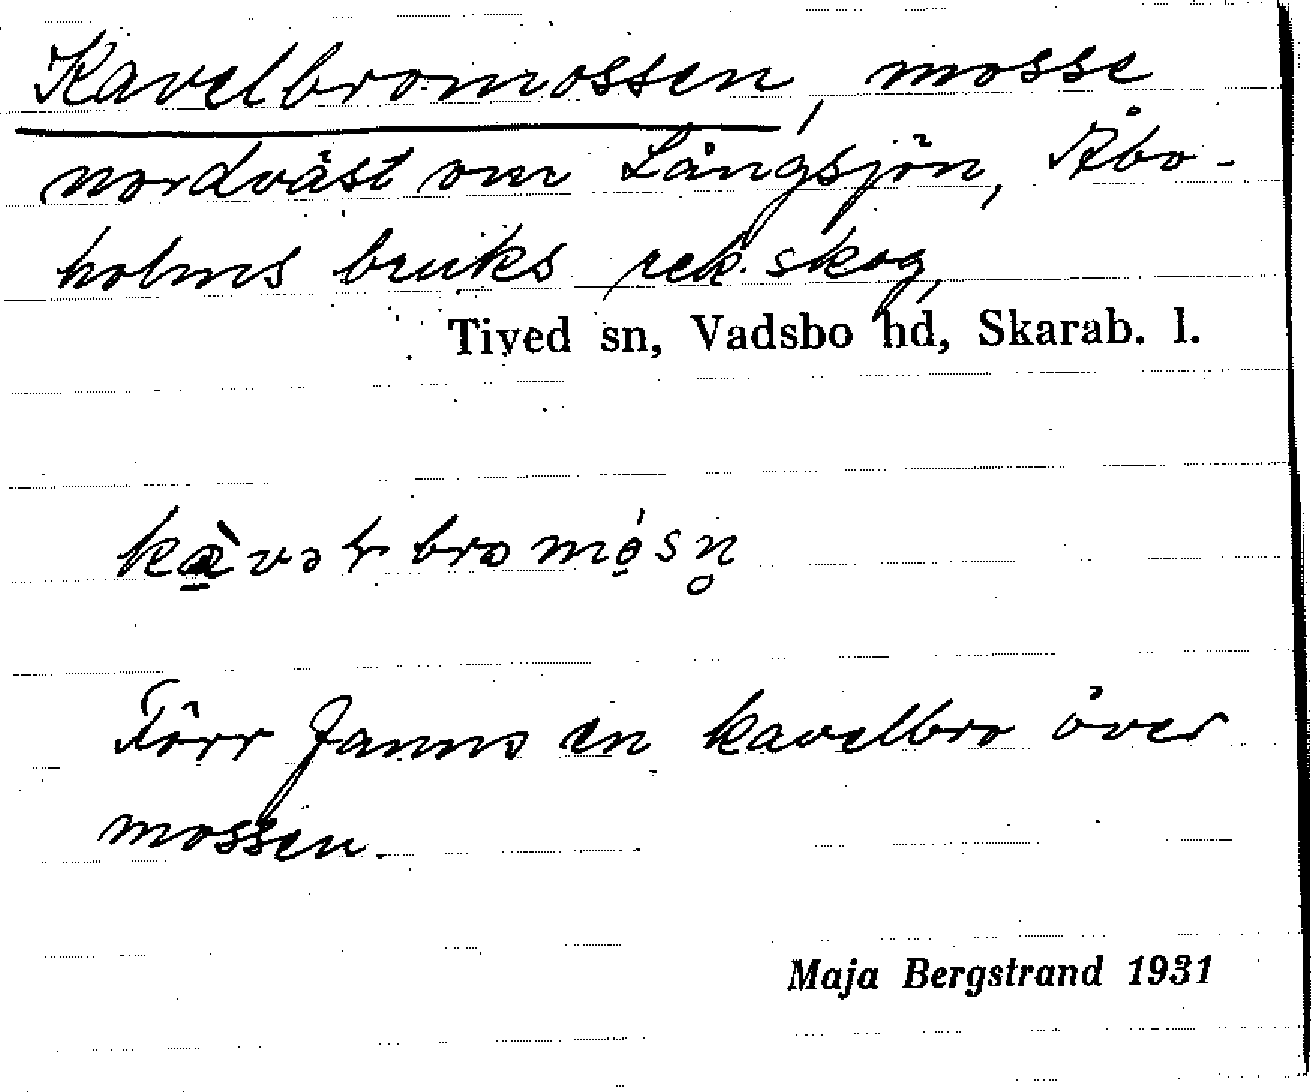 Kavelbromossen, mosse
nordväst om Långsjön, Åbo-
holms bruks rek. skog,
Tived sn, Vadsbo hd, Skarab. l.
Förr fanns en kavelbro över
mossen.
Maja Bergstrand 1931